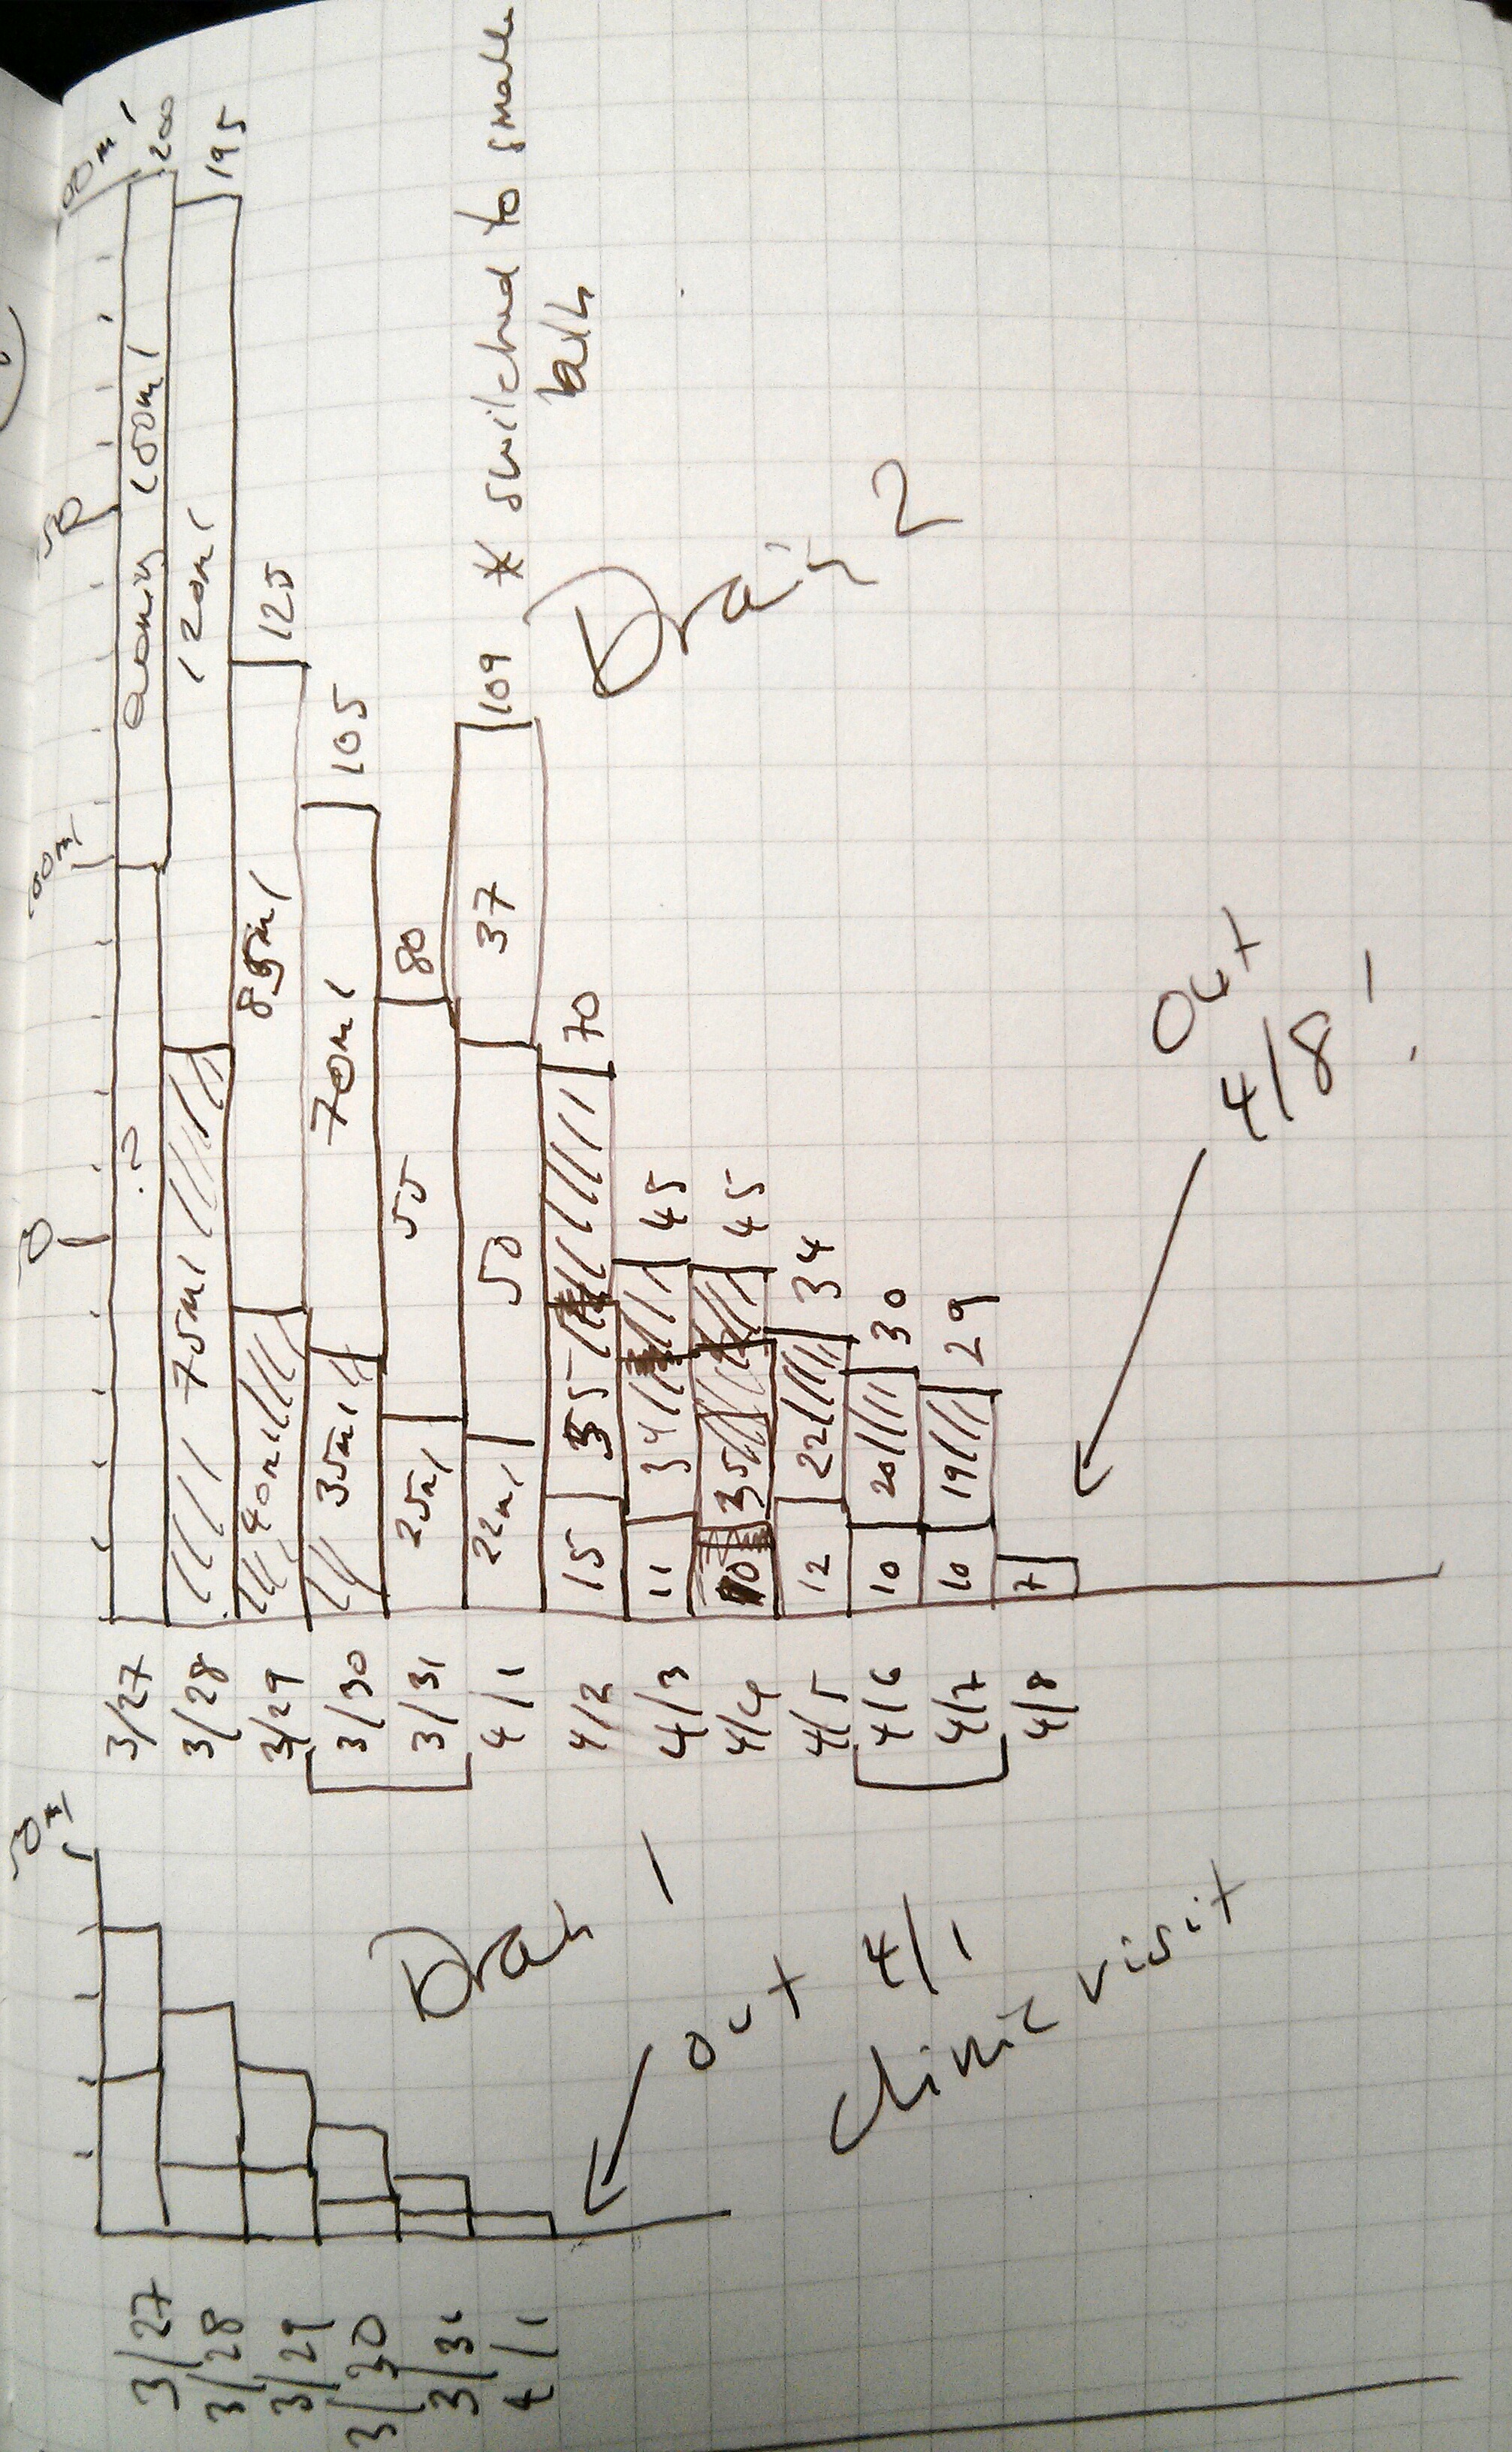 00ml
200
195
50
evening 100ml
120ml
125
105
* switched to small
bulb
Drain 2
109
100ml
85ml
70ml
80
37
70
50
?
75ml
40ml
35ml
55
25ml
50
22ml
35
15
45
34
11
45
35
10
34
22
12
30
20
10
29
19
10
7
out
4/8!
3/27
3/28
3/29
3/30
3/31
4/1
4/2
4/3
4/4
4/5
4/6
4/7
4/8
50ml
Drain 1
out 4/1
clinic visit
3/27
3/28
3/29
3/30
3/31
4/1